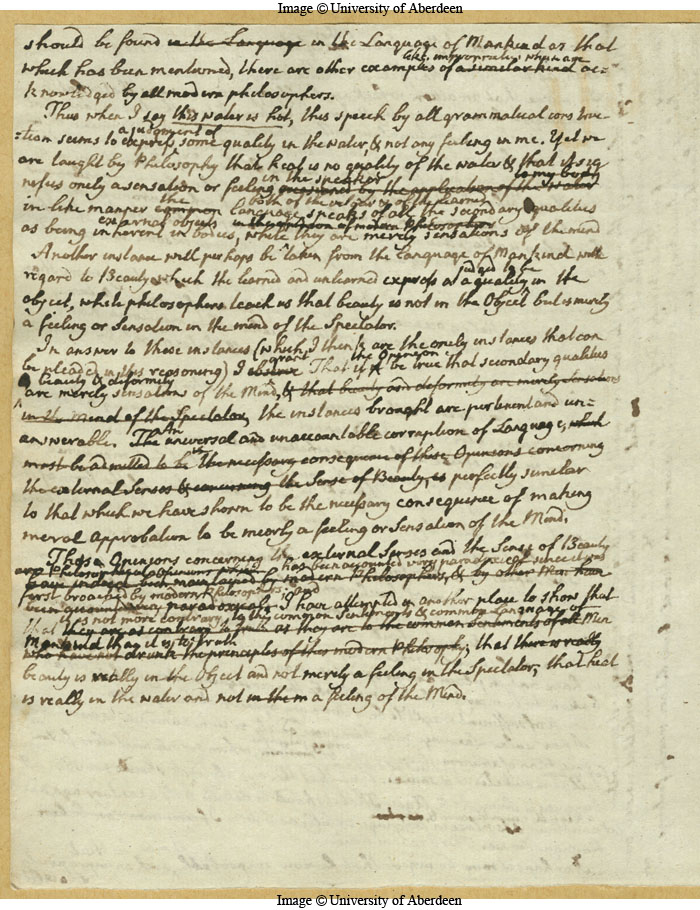 Image © University of Aberdeen
should be found in the Language in the Language of Mankind as that
like impropriety which are
which has been mentioned, there are other examples of a similar kind ac-
knowledged by all modern philosophers.
Thus when I say this water is hot, this speech by all grammatical construc-
a judgment of
tion seems to express some quality in the water, & not any feeling in me. Yet we
are taught by Philosophy that heat is no quality of the water & that it sig
in the speaker to my body
nifies onely a sensation or feeling occasioned by the application of the water
the both of the vulgar & of the learned
in like manner common language speaks of all the secondary qualities
external objects in the opinion of modern Philosophers
as being inherent in bodies, while they are merely sensations of the mind
Another instance will perhaps be taken from the Language of Mankind with
judged to be
regard to Beauty which the learned and unlearned express as a quality in the
object, while philosophers teach us that beauty is not in the Object but is merely
a feeling or Sensation in the mind of the Spectator.
In answer to these instances (which I think are the onely instances that can
grant the Opinion
be pleaded in this reasoning) I observe That if it be true that secondary qualities
beauty & deformity
are merely sensations of the Mind, & that beauty and deformity are merely sensations
in the mind of the Spectator, the instances brought are pertinent and un-
An
answerable. The universal and unaccountable corruption of Language, which
must be admitted to be the necessary consequence of these Opinions concerning
the external Senses & concerning the Sense of Beauty, is perfectly similar
to that which we have shown to be the necessary consequence of making
moral Approbation to be mearly a feeling or Sensation of the Mind.
Those Opinions concerning the external Senses and the Sense of Beauty
are Philosophical Opinions which has been accounted very paradoxical since it was
have indeed been maintained by modern Philosophers, & by other Men
first broached by modern Philosophers and
been accounted very paradoxical. I have attempted in another place to show that
is not more contrary to the common Sentiments & common Language of
that they are as contrary to truth as they are to the common Sentiments of all Men
Mankind than it is to truth
who have not drunk the principles of this modern Philosophy; that there is really
beauty is really in the Object and not merely a feeling in the Spectator, that heat
is really in the water and not in them a feeling of the Mind.
Image © University of Aberdeen